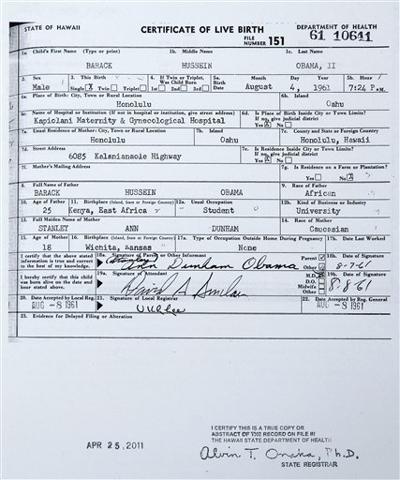 STATE OF HAWAII
CERTIFICATE OF LIVE BIRTH
DEPARTMENT OF HEALTH
FILE NUMBER 151
61 10641
1a. Child's First Name (Type or print)
1b. Middle Name
1c. Last Name
BARACK HUSSEIN OBAMA, II
2. Sex
Male
3. This Birth
Single X Twin Triplet
4. If Twin or Triplet, Was Child Born
1st 2nd 3rd
5a. Birth Date
Month Day Year
August 4, 1961
5b. Hour
7:24 P.M.
6a. Place of Birth: City, Town or Rural Location
Honolulu
6b. Island
Oahu
6c. Name of Hospital or Institution (If not in hospital or institution, give street address)
Kapiolani Maternity & Gynecological Hospital
6d. Is Place of Birth Inside City or Town Limits?
If no, give judicial district
Yes X No
7a. Usual Residence of Mother: City, Town or Rural Location
Honolulu
7b. Island
Oahu
7c. County and State or Foreign Country
Honolulu, Hawaii
7d. Street Address
6085 Kalanianaole Highway
7e. Is Residence Inside City or Town Limits?
If no, give judicial district
Yes X No
7f. Mother's Mailing Address
7g. Is Residence on a Farm or Plantation?
Yes No X
8. Full Name of Father
BARACK HUSSEIN OBAMA
9. Race of Father
African
10. Age of Father
25
11. Birthplace (Island, State or Foreign Country)
Kenya, East Africa
12a. Usual Occupation
Student
12b. Kind of Business or Industry
University
13. Full Maiden Name of Mother
STANLEY ANN DUNHAM
14. Race of Mother
Caucasian
15. Age of Mother
18
16. Birthplace (Island, State or Foreign Country)
Wichita, Kansas
17a. Type of Occupation Outside Home During Pregnancy
None
17b. Date Last Worked
I certify that the above stated information is true and correct to the best of my knowledge.
18a. Signature of Parent or Other Informant
(Stanley) Ann Dunham Obama
Parent
Other
18b. Date of Signature
8-7-61
I hereby certify that this child was born alive on the date and hour stated above.
19a. Signature of Attendant
David A Sinclair
M.D.
D.O.
Midwife
Other
19b. Date of Signature
8-8-61
20. Date Accepted by Local Reg.
AUG -8 1961
21. Signature of Local Registrar
22. Date Accepted by Reg. General
AUG -8 1961
23. Evidence for Delayed Filing or Alteration
APR 25, 2011
I CERTIFY THIS IS A TRUE COPY OR
ABSTRACT OF THE RECORD ON FILE IN
THE HAWAII STATE DEPARTMENT OF HEALTH
Alvin T. Onaka, Ph.D.
STATE REGISTRAR